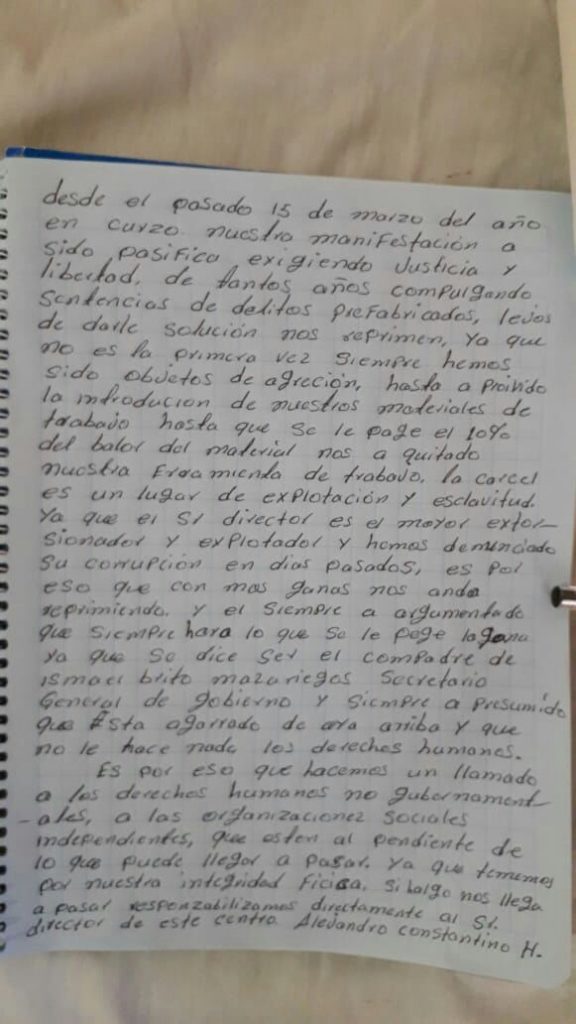 desde el pasado 15 de marzo del año
en curzo nuestra manifestación a
sido pasifica exigiendo Justicia y
libertad, de tantos años compulgando
sentencias de delitos prefabricados, lejos
de darle solución nos reprimen, ya que
no es la primera vez siempre hemos
sido objetos de agreción, hasta a proivido
la introducion de nuestros materiales de
trabajo hasta que se le page el 10%
del balor del material nos a quitado
nuestra Erramienda de trabajo. la carcel
es un lugar de explotación y esclavitud.
Ya que el Sr director es el mayor extor-
sionador y explotador y hemos denunciado
su corrupción en dias pasados, es por
eso que con mas ganas nos anda
reprimiendo. y el siempre a argumentado
que siempre hara lo que se le pege la gana
ya que se dice ser el compadre de
ismael brito mazariegos Secretario
General de gobierno y siempre a presumido
que Esta agarrado de arriba y que
no le hace nada los derechos humanos.
Es por eso que hacemos un llamado
a los derechos humanos no gubernament-
-ales, a las organizacionez sociales
independientes, que esten al pendiente de
lo que puede llegar a pasar. Ya que tememos
por nuestra integridad ficica. Si halgo nos llega
a pasar responzabilizamos directamente al Sr.
director de este centro Alejandro constantino H.